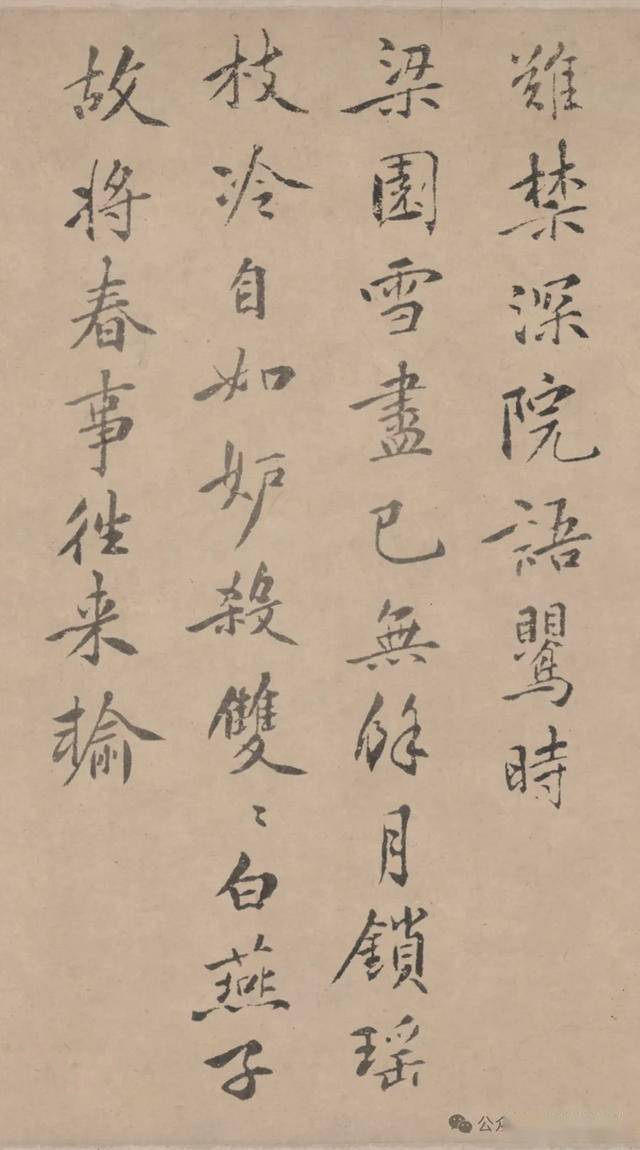 難禁深院語鸎時
梁園雪盡已無餘月鎖瑶
枝冷自如妒殺雙〻白燕子
故將春事往来輸
公众